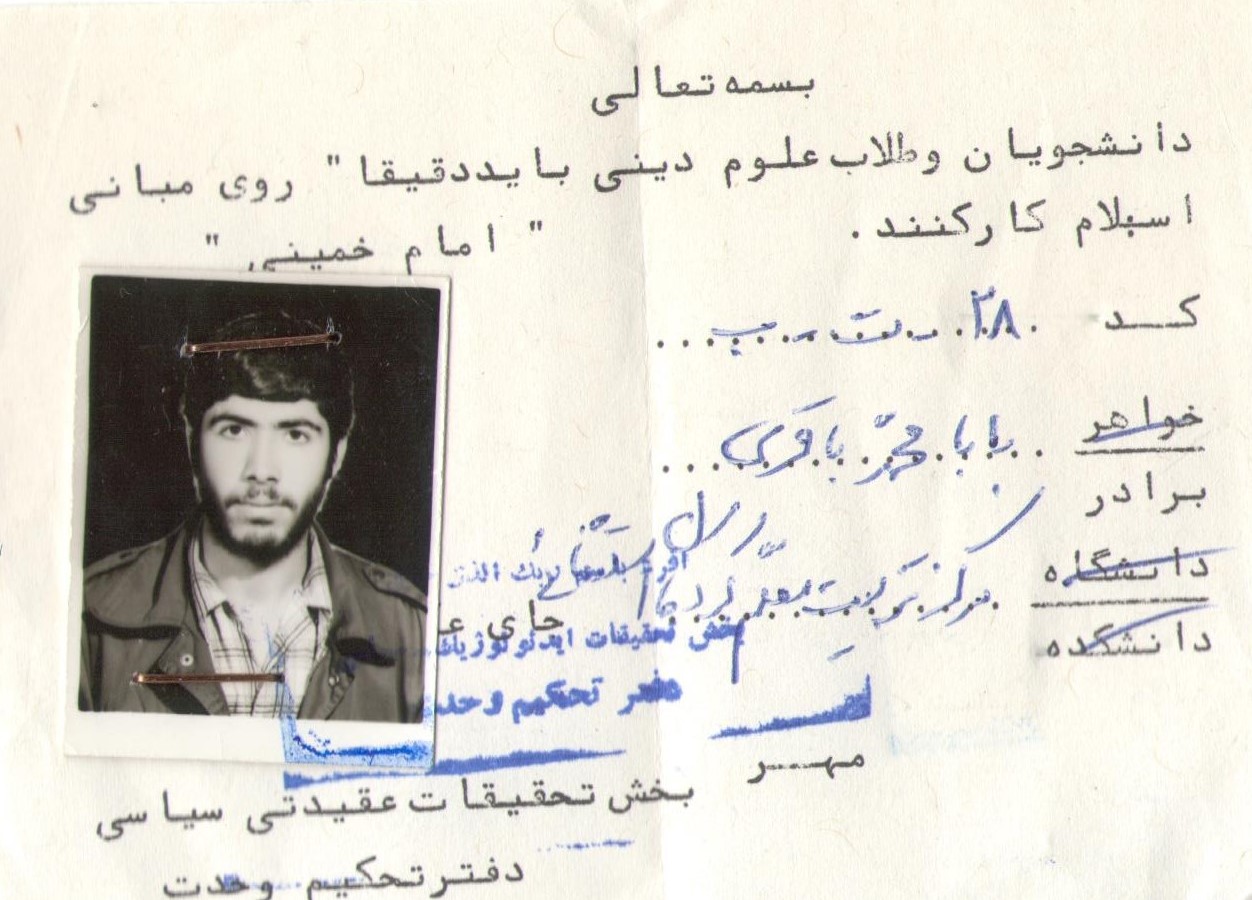 بسمه تعالی
دانشجویان وطلاب علوم دینی بایددقیقا" روی مبانی
اسلام کارکنند.
" امام خمینی "
کد ۲۸. ت. پ
خواهر
بابا محمد باقری
برادر
دانشگاه
مرکز تربیت معلم
دانشکده
جای
بخش تحقیقات ایدئولوژیک
دفتر تحکیم وحدت
مهر
بخش تحقیقات عقیدتی سیاسی
دفترتحکیم وحدت